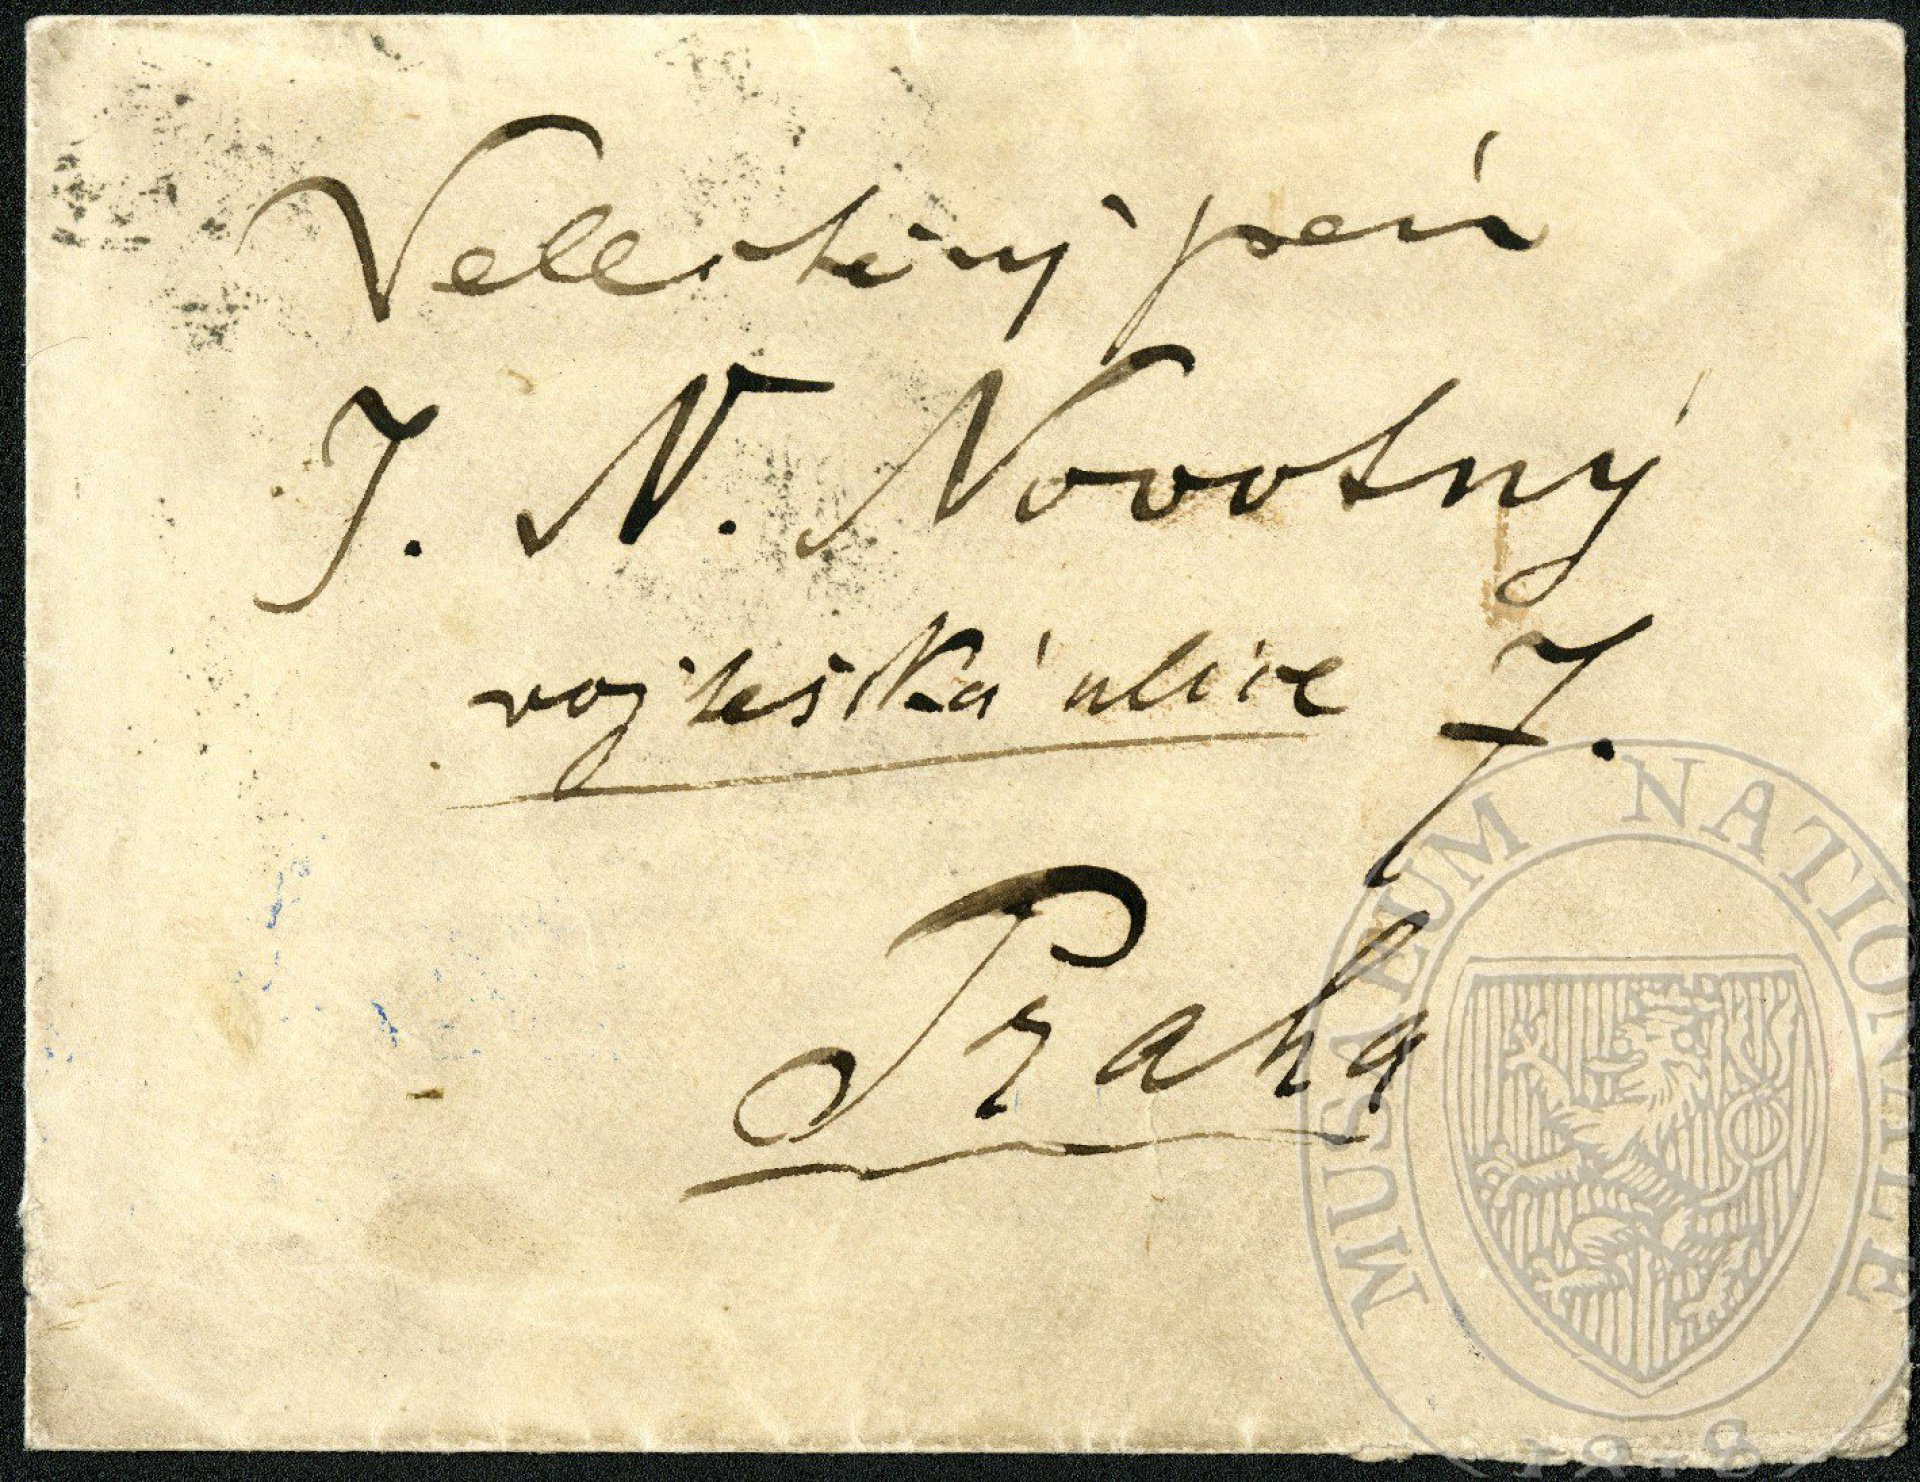 Velectěný pán
J. N. Novotný
vojtěšká ulice 7.
Praha
MUSAEUM NATIONALE
1818